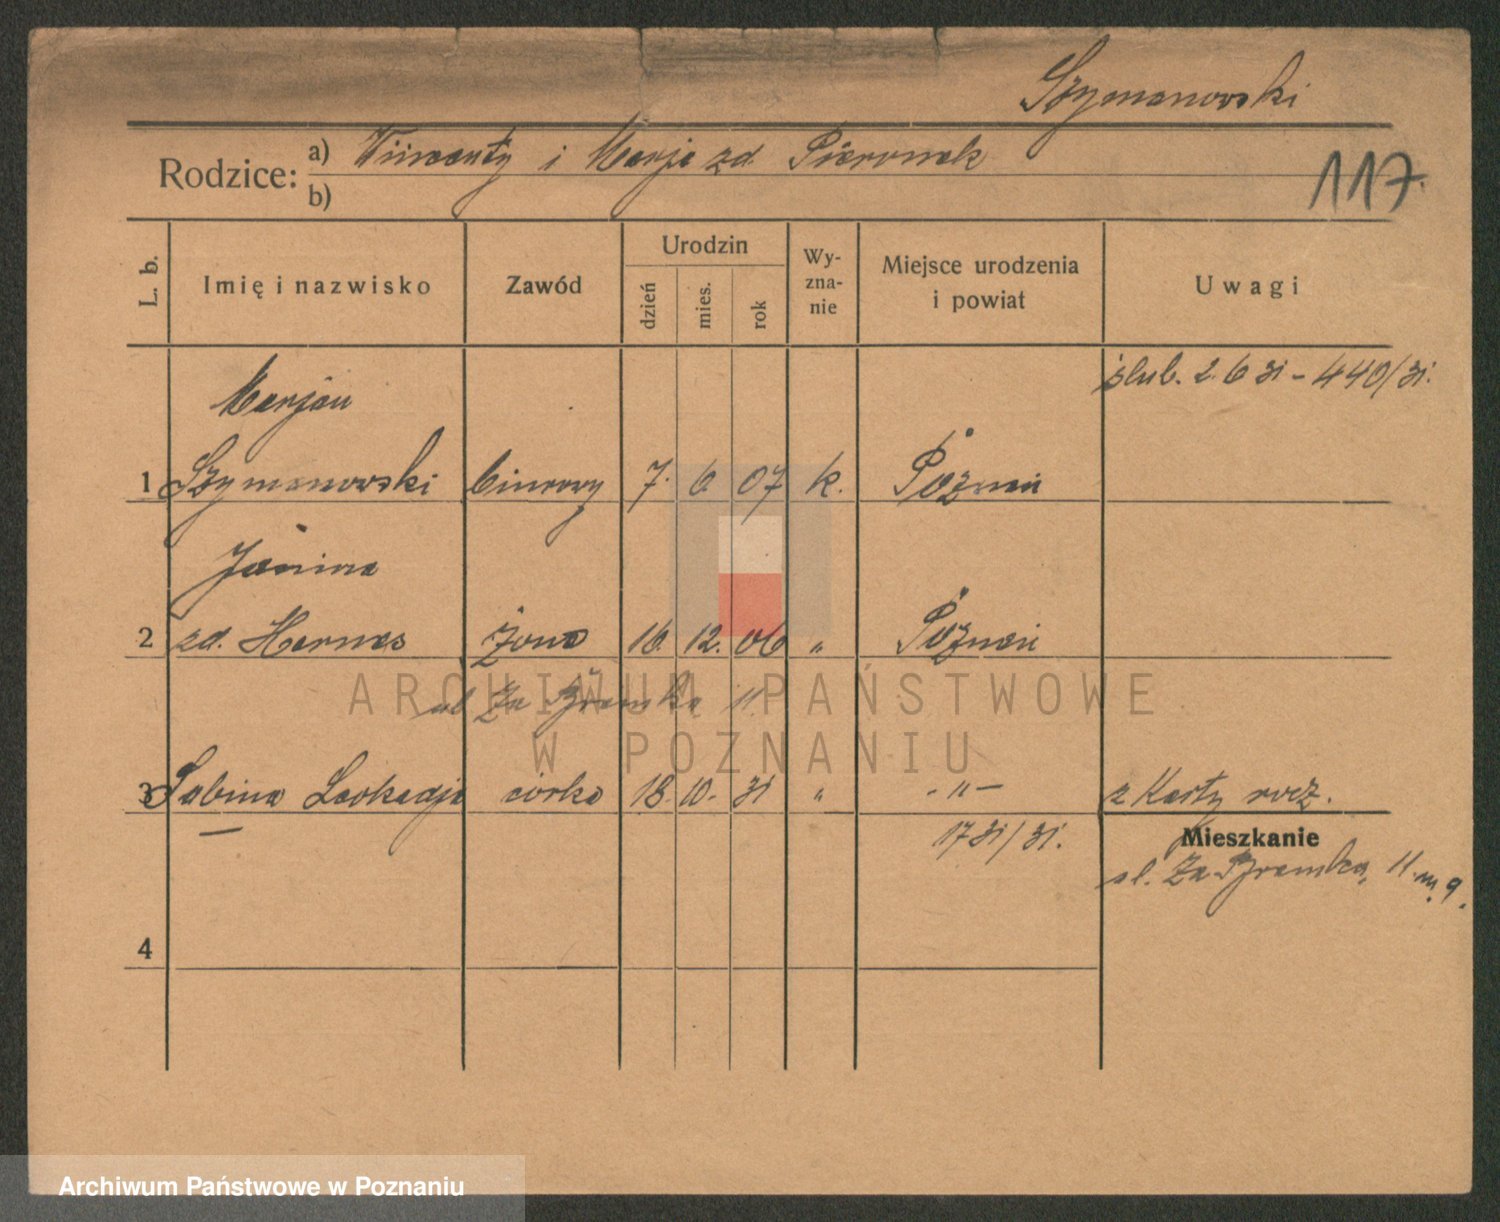 Szymanowski
Rodzice: a) Wincenty i Marja zd. Pieronek
b)
117.
L. b.
Imię i nazwisko
Zawód
Urodzin
dzień
mies.
rok
Wy-
zna-
nie
Miejsce urodzenia
i powiat
Uwagi
ślub. 2. 6 31 - 440/31.
Marjan
1 Szymanowski biurowy 7. 6 07 k. Poznań
Janina
2 zd. Hermes żona 16. 12. 06 „ Poznań
ul Za Bramką 11
3 Sabina Leokadja córka 18. 10. 31 „ - „ - z Karty rocz.
1731/31.
Mieszkanie
ul. Za Bramką, 11 m. 9.
4
ARCHIWUM PAŃSTWOWE
W POZNANIU
Archiwum Państwowe w Poznaniu